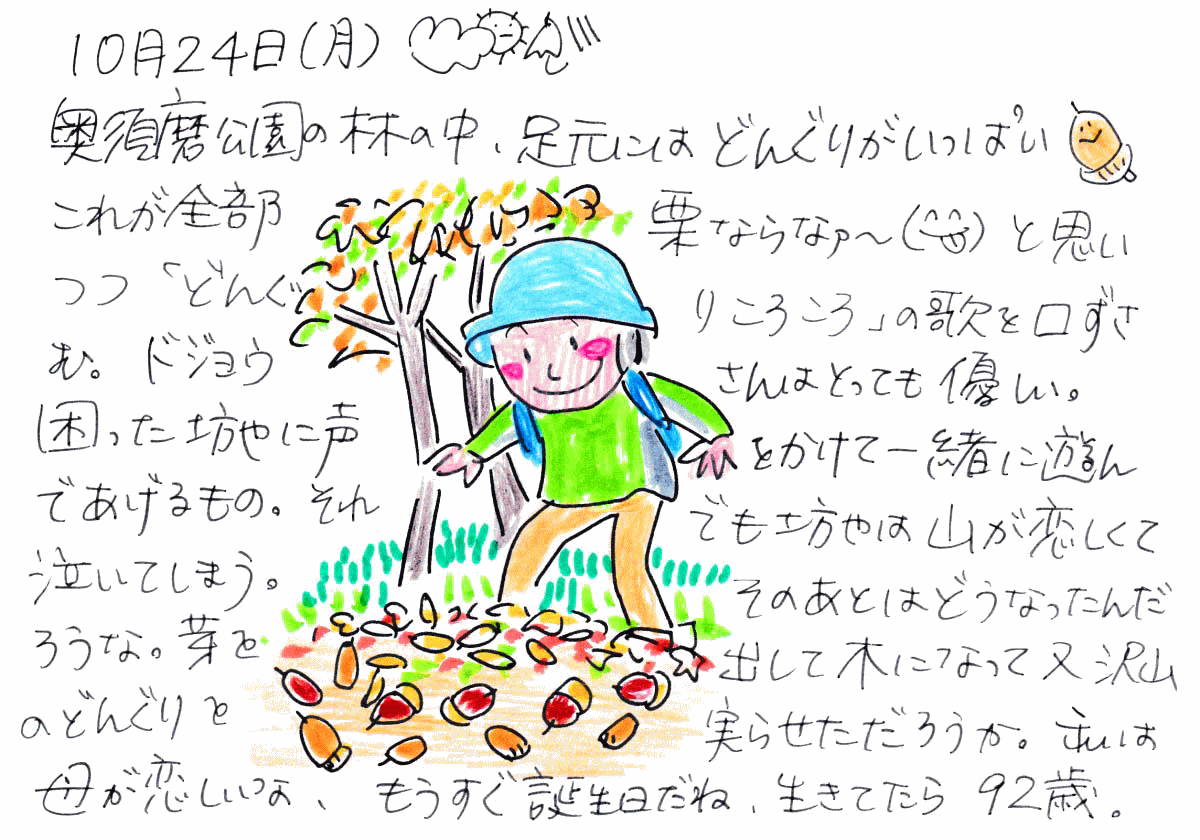 10月24日(月)
奥須磨公園の林の中、足元にはどんぐりがいっぱい
これが全部 栗ならなァ〜(^^)と思い
つつ「どんぐ りころころ」の歌を口ずさ
む。ドジョウ さんはとっても優しい。
困った坊やに声 をかけて一緒に遊ん
であげるもの。それ でも坊やは山が恋しくて
泣いてしまう。 そのあとはどうなったんだ
ろうな。芽を 出して木になって又沢山
のどんぐりを 実らせただろうか。私は
母が恋しいな、もうすぐ誕生日だね、生きてたら92歳。